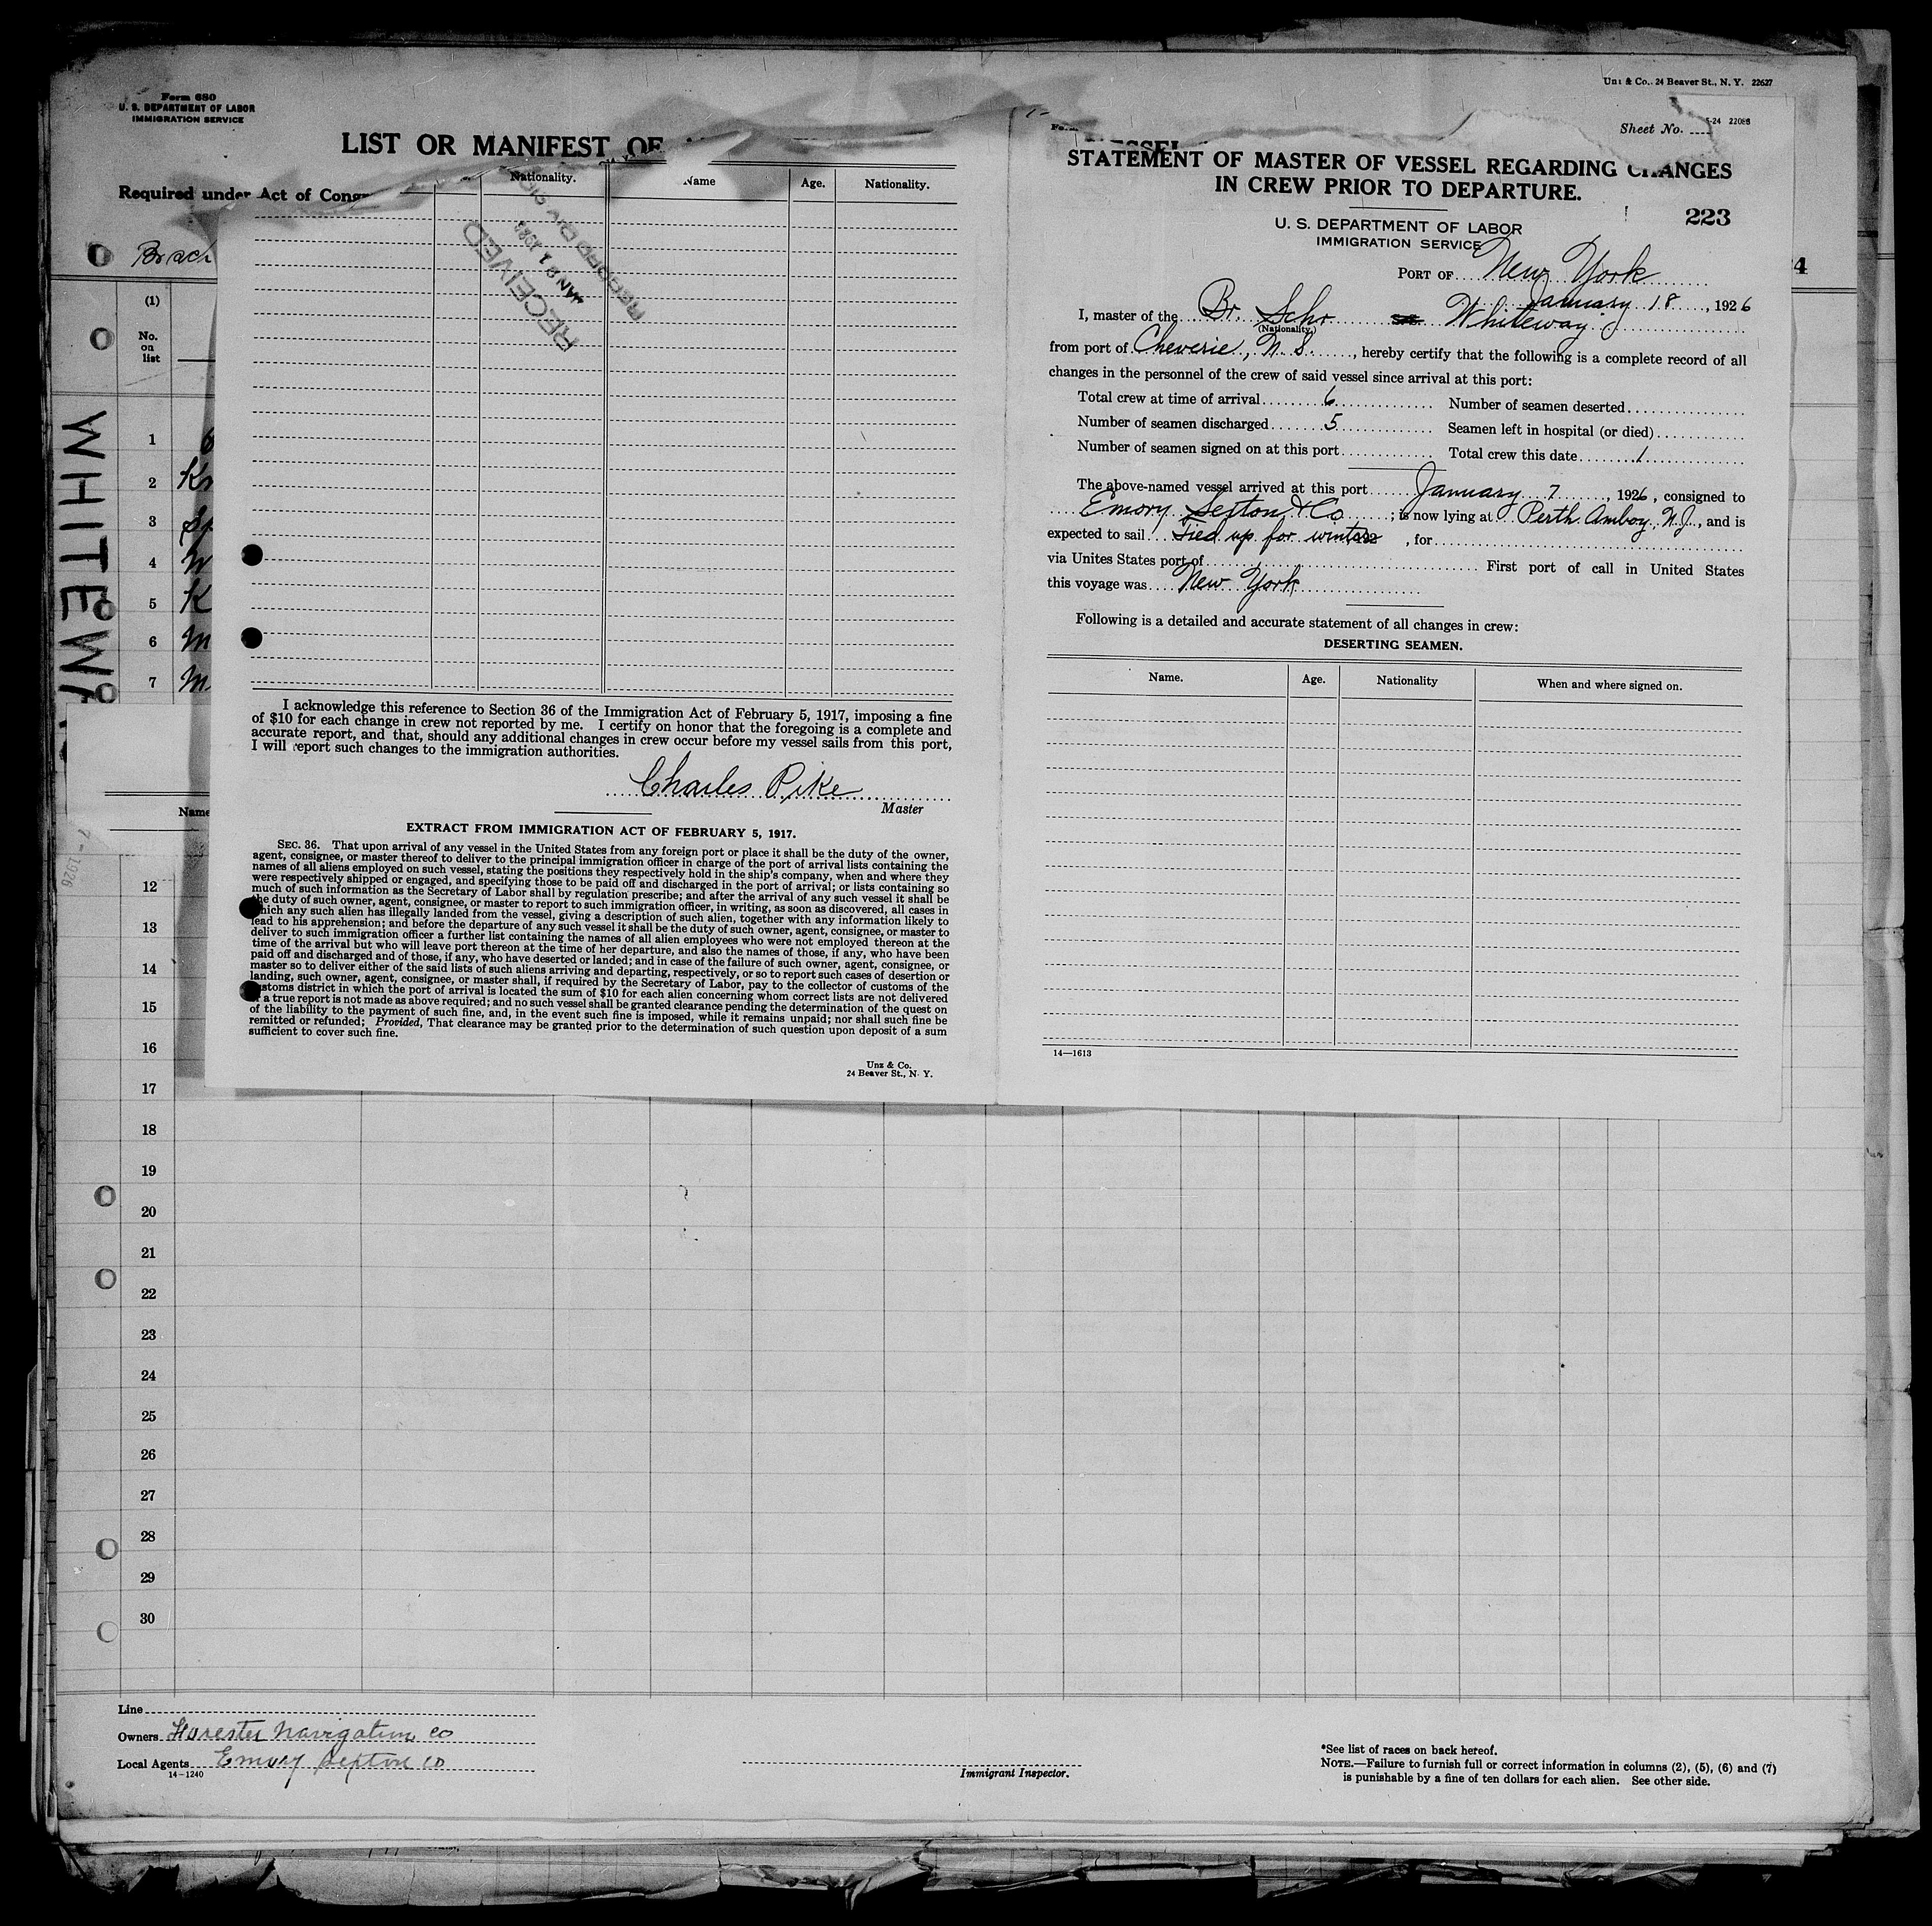 Form 680
U. S. DEPARTMENT OF LABOR
IMMIGRATION SERVICE
LIST OR MANIFEST OF
Required under Act of Cong
(1)
No.
on
list
WHITEWA
1
2
3
4
5
6
7
Name
7 - 1926
12
13
14
15
16
17
18
19
20
21
22
23
24
25
26
27
28
29
30
Line
Owners Forester Navigation Co
Local Agents Emory Sexton Co
14-1240
Immigrant Inspector.
*See list of races on back hereof.
NOTE.—Failure to furnish full or correct information in columns (2), (5), (6) and (7)
is punishable by a fine of ten dollars for each alien. See other side.
Nationality. Name Age. Nationality.
RECEIVED
JAN 21
RECORD DIVISION
I acknowledge this reference to Section 36 of the Immigration Act of February 5, 1917, imposing a fine
of $10 for each change in crew not reported by me. I certify on honor that the foregoing is a complete and
accurate report, and that, should any additional changes in crew occur before my vessel sails from this port,
I will report such changes to the immigration authorities.
Charles Pike
Master
EXTRACT FROM IMMIGRATION ACT OF FEBRUARY 5, 1917.
SEC. 36. That upon arrival of any vessel in the United States from any foreign port or place it shall be the duty of the owner,
agent, consignee, or master thereof to deliver to the principal immigration officer in charge of the port of arrival lists containing the
names of all aliens employed on such vessel, stating the positions they respectively hold in the ship's company, when and where they
were respectively shipped or engaged, and specifying those to be paid off and discharged in the port of arrival; or lists containing so
much of such information as the Secretary of Labor shall by regulation prescribe; and after the arrival of any such vessel it shall be
the duty of such owner, agent, consignee, or master to report to such immigration officer, in writing, as soon as discovered, all cases in
which any such alien has illegally landed from the vessel, giving a description of such alien, together with any information likely to
lead to his apprehension; and before the departure of any such vessel it shall be the duty of such owner, agent, consignee, or master to
deliver to such immigration officer a further list containing the names of all alien employees who were not employed thereon at the
time of the arrival but who will leave port thereon at the time of her departure, and also the names of those, if any, who have been
paid off and discharged and of those, if any, who have deserted or landed; and in case of the failure of such owner, agent, consignee, or
master so to deliver either of the said lists of such aliens arriving and departing, respectively, or so to report such cases of desertion or
landing, such owner, agent, consignee, or master shall, if required by the Secretary of Labor, pay to the collector of customs of the
customs district in which the port of arrival is located the sum of $10 for each alien concerning whom correct lists are not delivered
a true report is not made as above required; and no such vessel shall be granted clearance pending the determination of the quest on
of the liability to the payment of such fine, and, in the event such fine is imposed, while it remains unpaid; nor shall such fine be
remitted or refunded; Provided, That clearance may be granted prior to the determination of such question upon deposit of a sum
sufficient to cover such fine.
Unz & Co.
24 Beaver St., N. Y.
Unz & Co., 24 Beaver St., N. Y. 22627
Sheet No.
-24 22086
STATEMENT OF MASTER OF VESSEL REGARDING CHANGES
IN CREW PRIOR TO DEPARTURE.
223
U. S. DEPARTMENT OF LABOR
IMMIGRATION SERVICE
PORT OF New York
January 18, 1926
I, master of the Br. Schr Whiteway
(Nationality)
from port of Cheverie, N. S., hereby certify that the following is a complete record of all
changes in the personnel of the crew of said vessel since arrival at this port:
Total crew at time of arrival 6 Number of seamen deserted
Number of seamen discharged 5 Seamen left in hospital (or died)
Number of seamen signed on at this port Total crew this date 1
The above-named vessel arrived at this port January 7, 1926, consigned to
Emory Sexton & Co; is now lying at Perth Amboy, N. J., and is
expected to sail Tied up for winter, for
via Unites States port of First port of call in United States
this voyage was New York
Following is a detailed and accurate statement of all changes in crew:
DESERTING SEAMEN.
Name. Age. Nationality When and where signed on.
14—1613